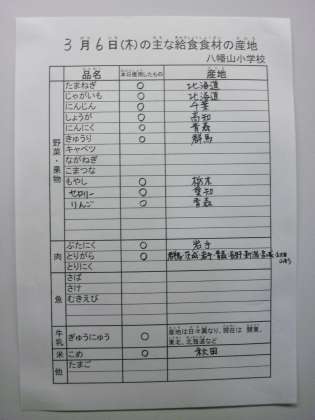 3月6日(木)の主な給食食材の産地
八幡山小学校
品名 本日使用したもの 産地
野菜・果物
たまねぎ ○ 北海道
じゃがいも ○ 北海道
にんじん ○ 千葉
しょうが ○ 高知
にんにく ○ 青森
きゅうり ○ 群馬
キャベツ
ながねぎ
こまつな
もやし ○ 栃木
セロリー ○ 愛知
りんご ○ 青森
肉
ぶたにく ○ 岩手
とりがら ○ 群馬・茨城・岩手・青森・長野・新潟・宮城
とりにく
魚
さば
さけ
むきえび
牛乳
ぎゅうにゅう ○ 産地は日々異なり、現在は 関東、
東北、北海道など
米 こめ ○ 秋田
他 たまご